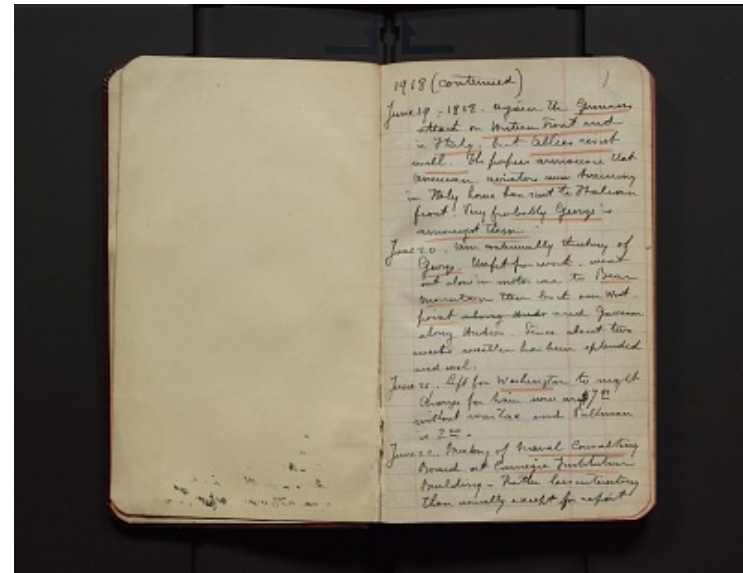 1918 (continued)
June 19 - 1918 - Again the Germans
attack on Western Front and
in Italy, but Allies resist
well. The papers announce that
American aviators now training
in Italy have been sent to Italian
front. Very probably George is
amongst them
June 20. Am continually thinking of
George. Unfit for work. went
out alone in motor car to Bear
Mountain then back over West
point along Hudson and
along Hudson. Since about two
weeks weather has been splendid
and cool.
June 21. left for Washington to night
Charge for train now are $7
without war tax and Pullman
is 2
June 22. Meeting of Naval Consulting
Board at Carnegie Institution
Building. Rather less interesting
than usually except for report